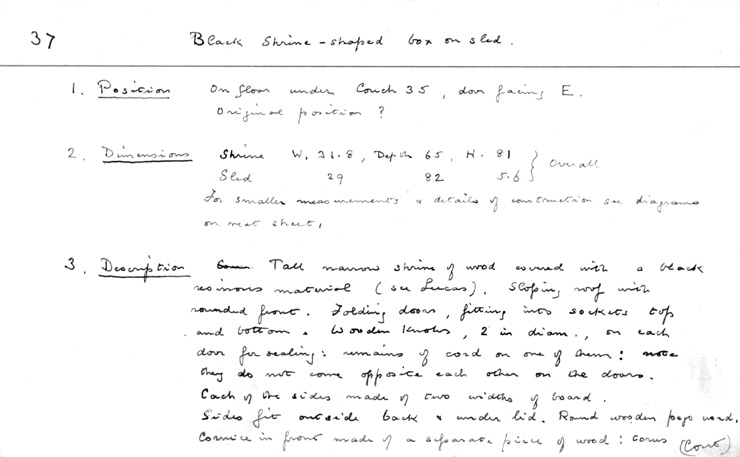 37 Black Shrine-shaped box on sled.
1. Position On floor under Couch 35, door facing E.
Original position ?
2. Dimensions Shrine W. 31.8, Depth 65, H. 81 } Overall
Sled 29 82 5.6
For smaller measurements & details of construction see diagrams
on next sheet.
3. Description Tall narrow shrine of wood covered with a black
resinous material (see Lucas). Sloping roof with
rounded front. Folding doors, fitting into sockets top
and bottom. Wooden knobs, 2 in diam., on each
door for sealing: remains of cord on one of them: note
they do not come opposite each other on the doors.
Each of the sides made of two widths of board.
Sides fit outside back & under lid. Round wooden pegs used.
Cornice in front made of a separate piece of wood: (Cont)